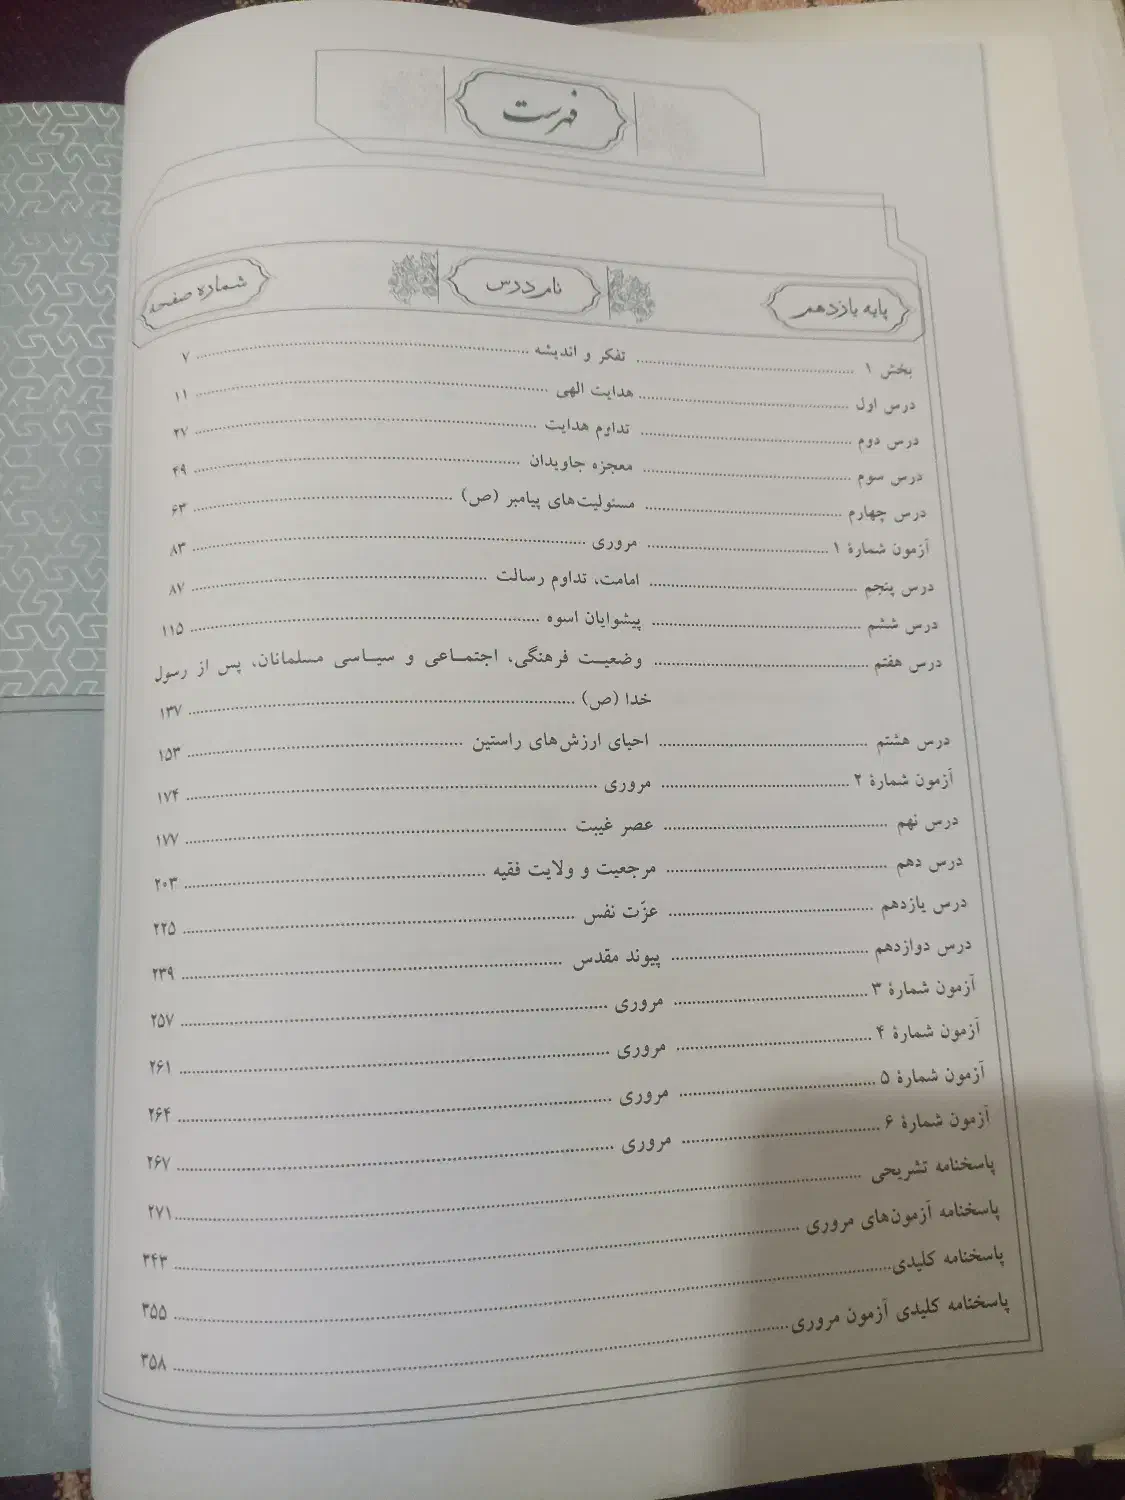 فهرست
پایه یازدهم نام درس شماره صفحه
بخش ۱ تفکر و اندیشه ۷
درس اول هدایت الهی ۱۱
درس دوم تداوم هدایت ۲۷
درس سوم معجزه جاویدان ۴۹
درس چهارم مسئولیت‌های پیامبر (ص) ۶۳
آزمون شمارهٔ ۱ مروری ۸۳
درس پنجم امامت، تداوم رسالت ۸۷
درس ششم پیشوایان اسوه ۱۱۵
درس هفتم وضعیت فرهنگی، اجتماعی و سیاسی مسلمانان، پس از رسول
خدا (ص) ۱۳۷
درس هشتم احیای ارزش‌های راستین ۱۵۳
آزمون شمارهٔ ۲ مروری ۱۷۴
درس نهم عصر غیبت ۱۷۷
درس دهم مرجعیت و ولایت فقیه ۲۰۳
درس یازدهم عزّت نفس ۲۲۵
درس دوازدهم پیوند مقدس ۲۳۹
آزمون شمارهٔ ۳ مروری ۲۵۷
آزمون شمارهٔ ۴ مروری ۲۶۱
آزمون شمارهٔ ۵ مروری ۲۶۴
آزمون شمارهٔ ۶ مروری ۲۶۷
پاسخنامه تشریحی ۲۷۱
پاسخنامه آزمون‌های مروری ۳۴۳
پاسخنامه کلیدی ۳۵۵
پاسخنامه کلیدی آزمون مروری ۳۵۸